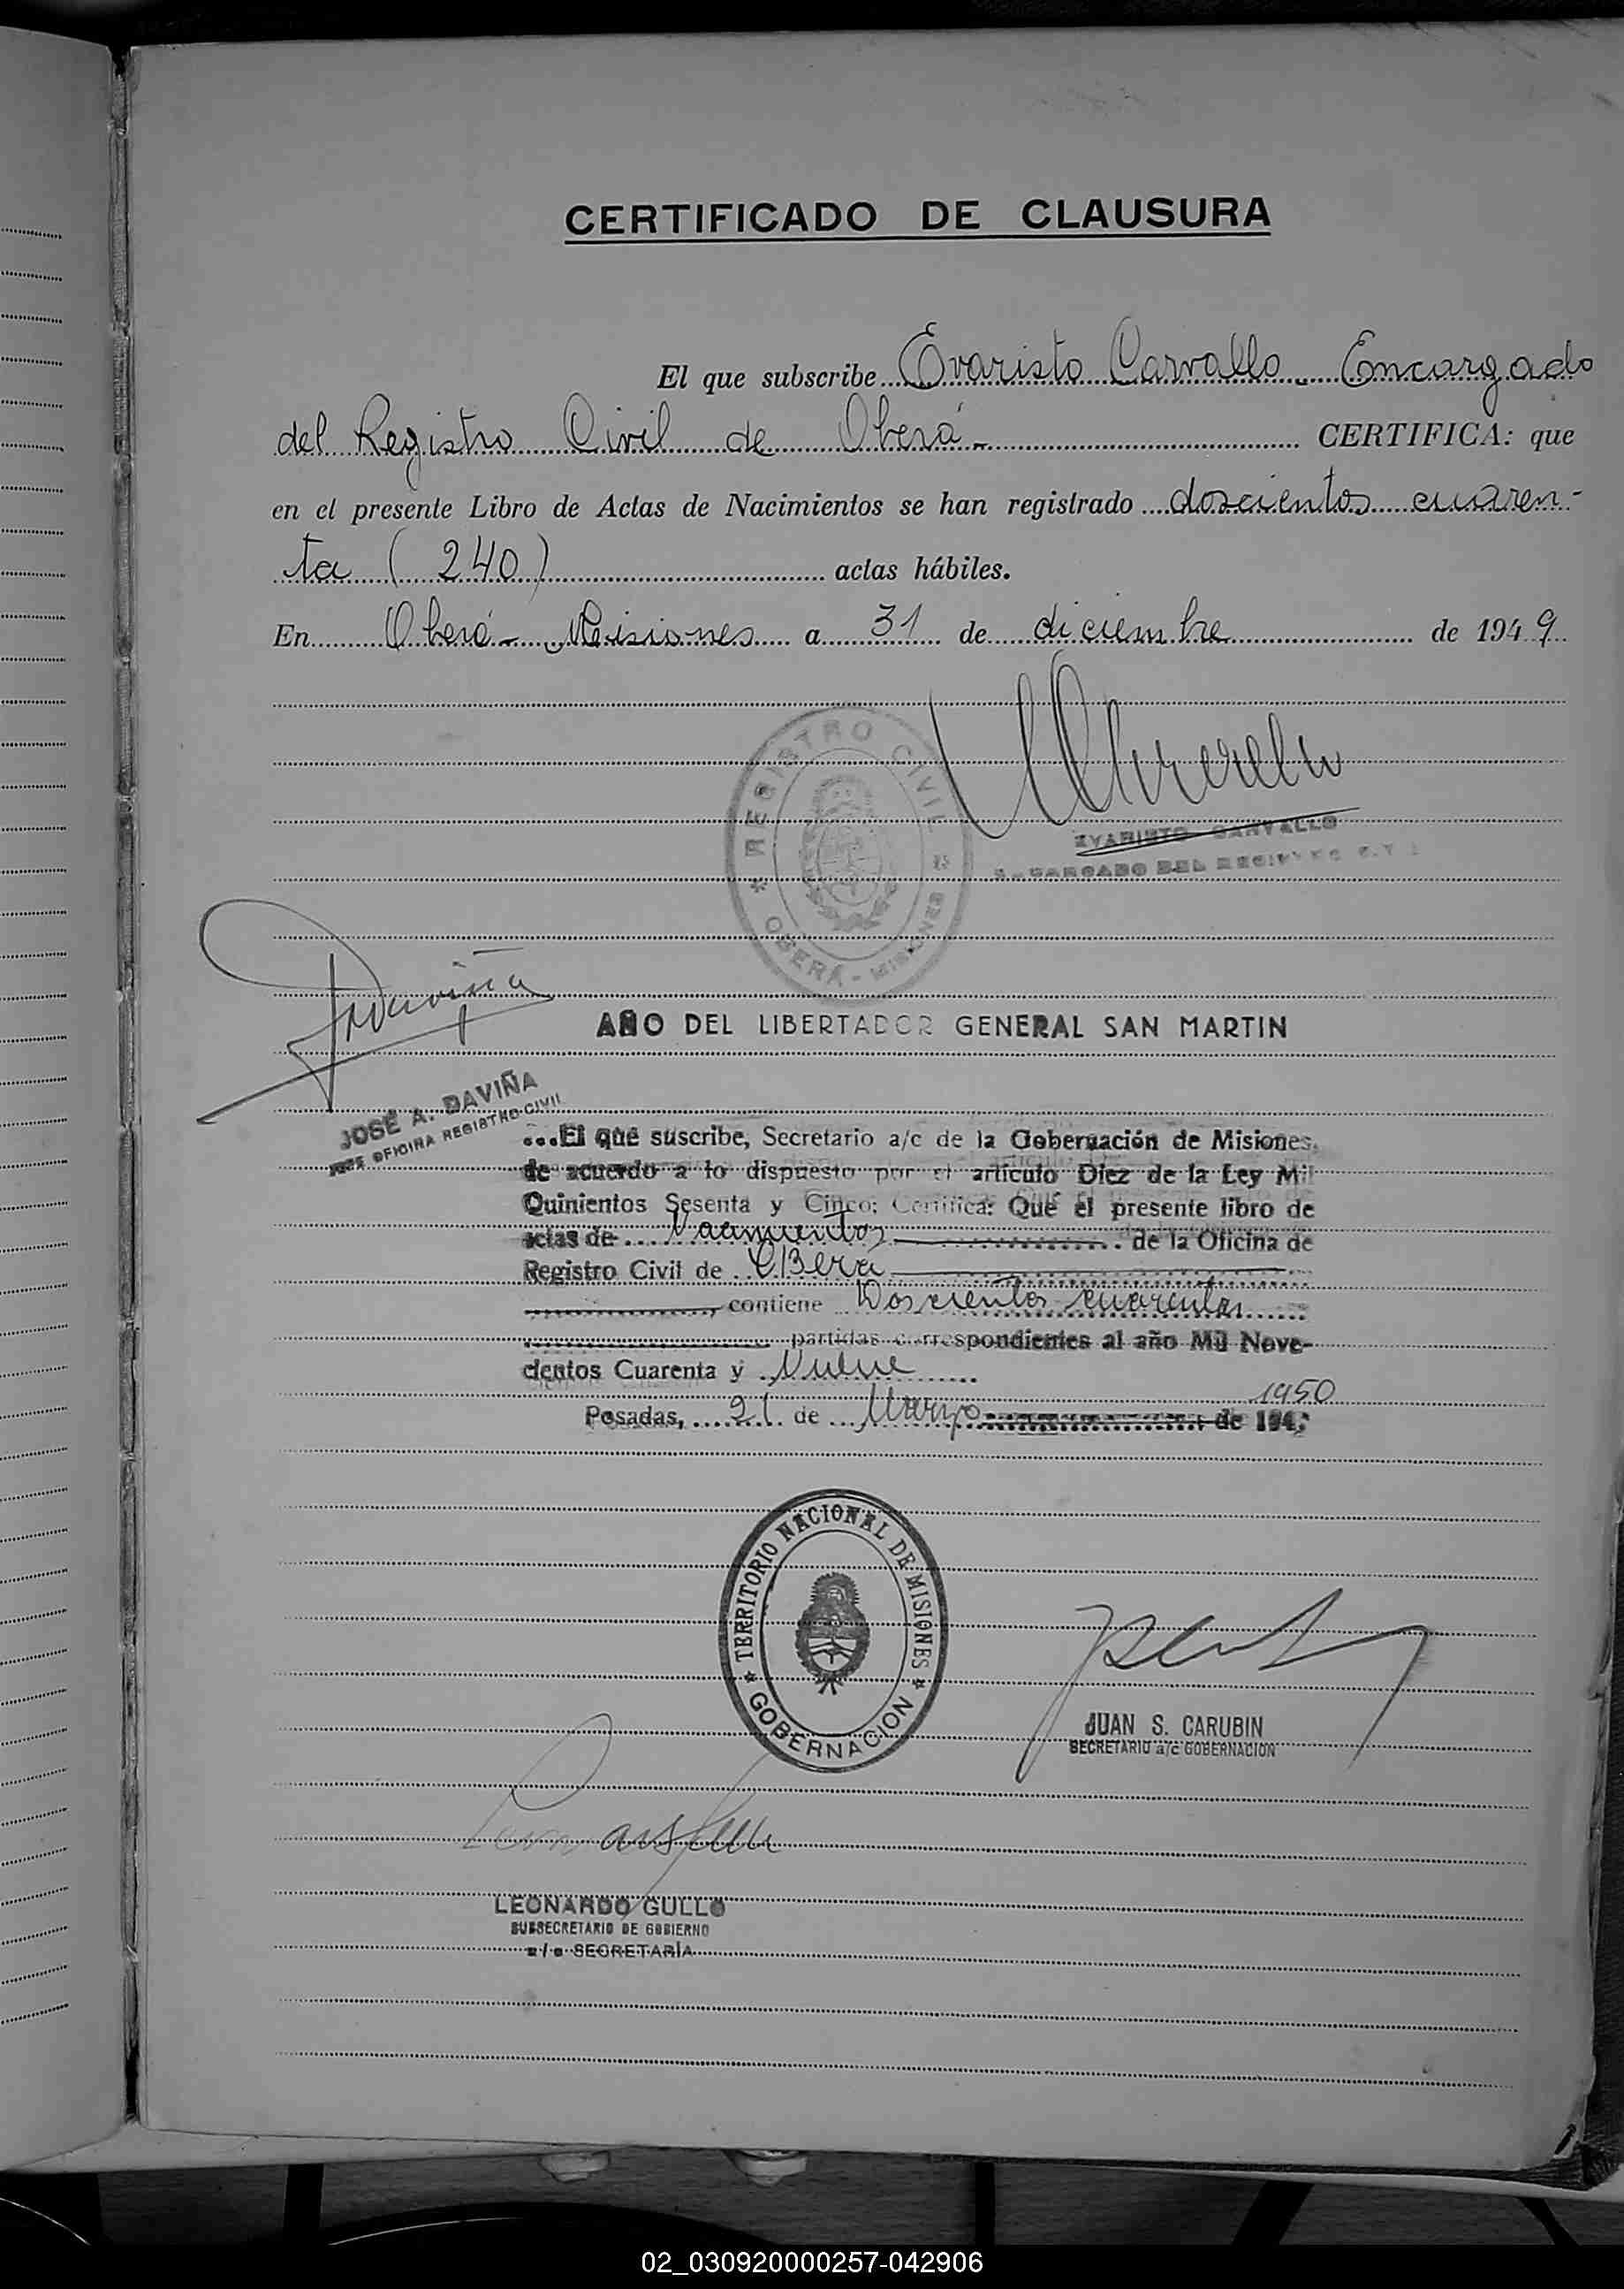 CERTIFICADO DE CLAUSURA
El que subscribe Evaristo Carvallo - Encargado
del Registro Civil de Oberá - CERTIFICA: que
en el presente Libro de Actas de Nacimientos se han registrado doscientos cuaren-
ta ( 240 ) actas hábiles.
En Oberá - Misiones a 31 de diciembre de 1949
REGISTRO CIVIL
OBERÁ - MISIONES
EVARISTO CARVALLO
ENCARGADO DEL REGISTRO
Daviña
AÑO DEL LIBERTADOR GENERAL SAN MARTIN
JOSÉ A. DAVIÑA
JEFE OFICINA REGISTRO CIVIL
...El que suscribe, Secretario a/c de la Gobernación de Misiones,
de acuerdo a lo dispuesto por el artículo Diez de la Ley Mil
Quinientos Sesenta y Cinco; Certifica: Que el presente libro de
actas de Nacimientos de la Oficina de
Registro Civil de OBera
, contiene Doscientos cuarenta
partidas correspondientes al año Mil Nove-
cientos Cuarenta y Nueve
1950
Posadas, 21 de Marzo de 194
TERRITORIO NACIONAL DE MISIONES
GOBERNACION
JUAN S. CARUBIN
SECRETARIO a/c GOBERNACION
LEONARDO GULLO
SUBSECRETARIO DE GOBIERNO
a/c SECRETARÍA
02_030920000257-042906